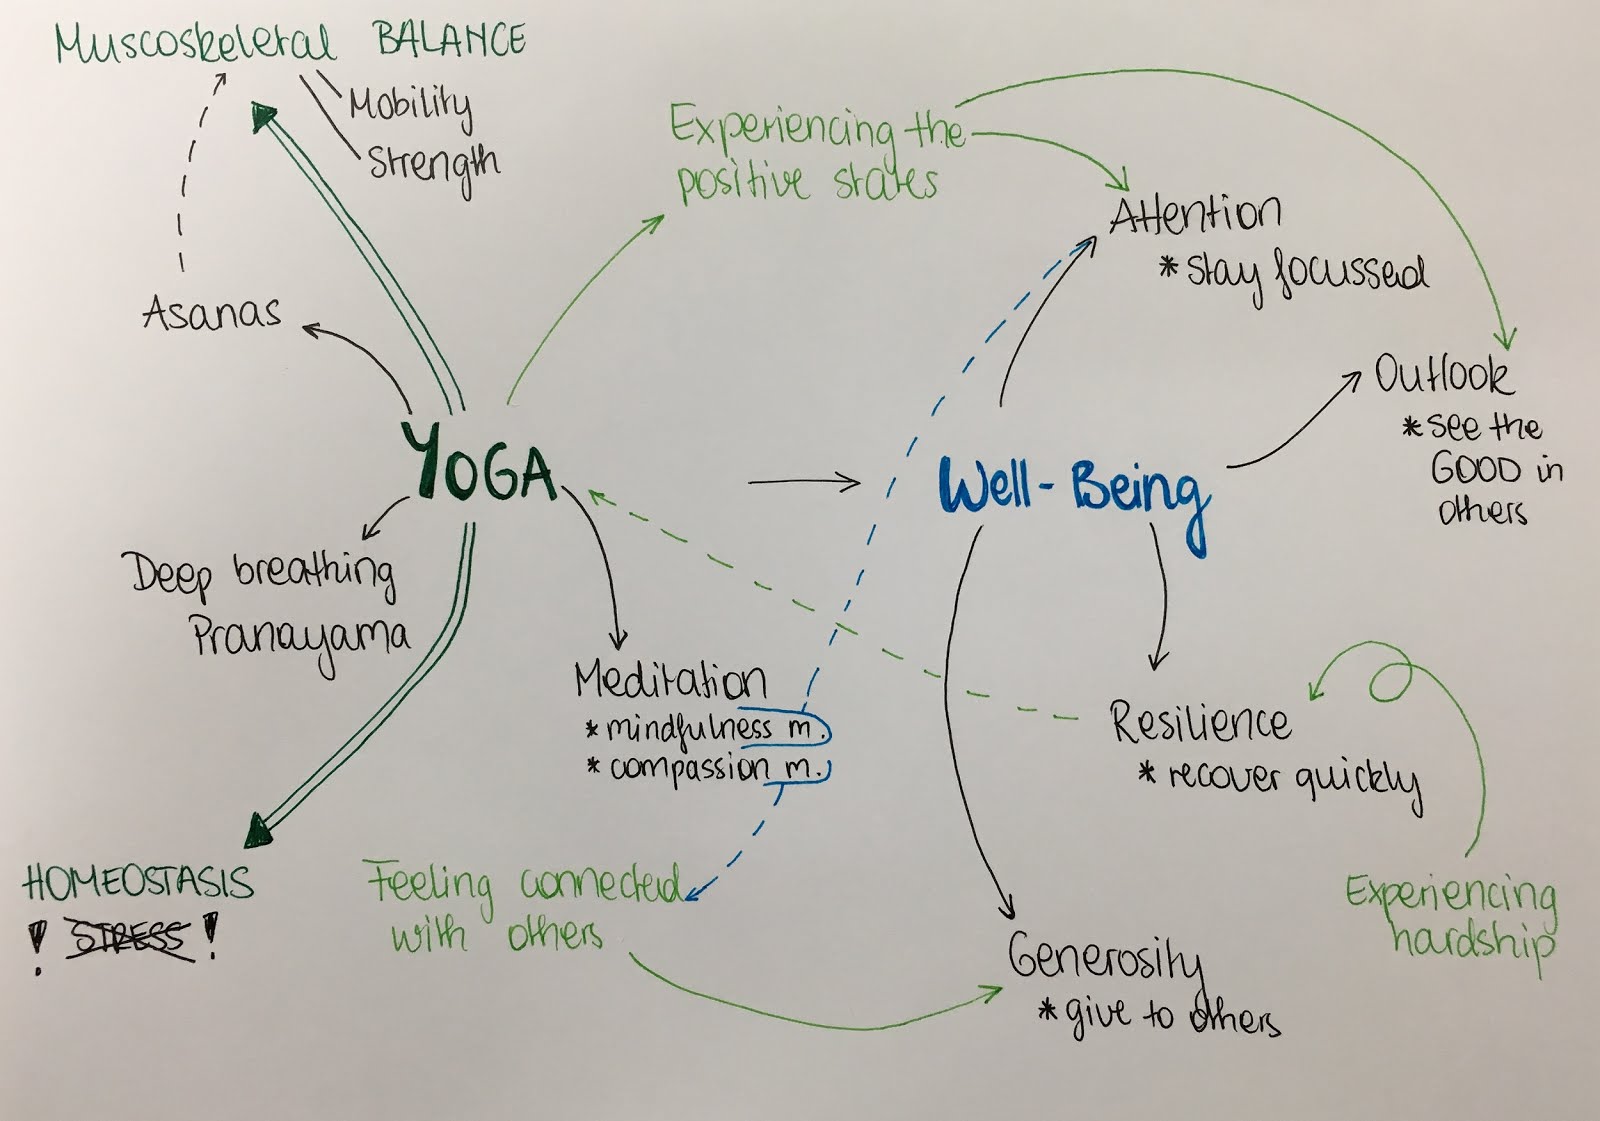 Muscoskeletal BALANCE
Mobility
Strength
Experiencing the
positive states
Attention
* stay focussed
Asanas
Outlook
* see the
GOOD in
others
YOGA
Well-Being
Deep breathing
Pranayama
Meditation
* mindfulness m.
* compassion m.
Resilience
* recover quickly
HOMEOSTASIS
! STRESS !
Feeling connected
with others
Experiencing
hardship
Generosity
* give to others